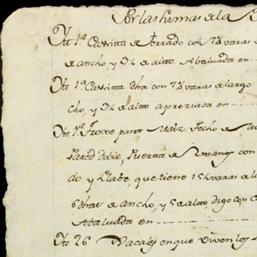 Por las
Yt 1ª Casitta de Terrado con 7½ varas
de ancho y 3½ de alto. Abaluada en
Yt 1ª Casitta otra con 7½ varas de largo
cho, y 3½ de alto apreziada en
Yt 1ª Troxe para Maiz. fecho de
Pared doble, Puertta de
do y Llabe, que tiene 15½ varas de la
6 otras de ancho, y 5 de alto digo con
Abaluada en
Yt 26 Jacales en que viven los